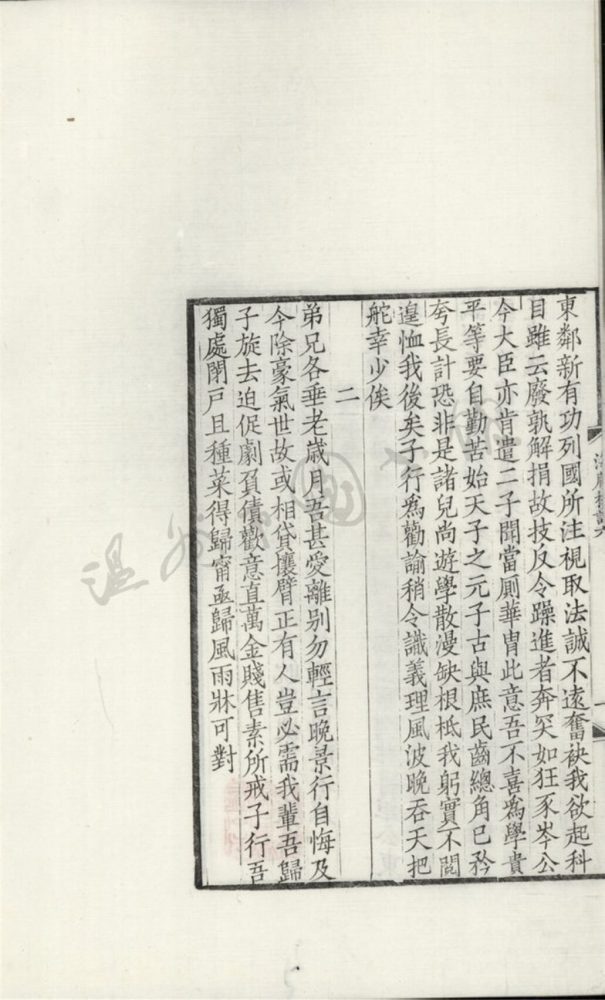 東鄰新有功列國所注視取法誠不遠奮袂我欲起科
目雖云廢孰解捐故技反令躁進者奔突如狂豕岑公
今大臣亦肯遣二子聞當厠華胄此意吾不喜爲學貴
平等要自勤苦始天子之元子古與庶民齒總角已矜
夸長計恐非是諸兒尚遊學散漫缺根柢我躬實不閱
遑恤我後矣子行爲勸諭稍令識義理風波晚吞天把
舵幸少俟
二
弟兄各垂老歲月吾甚愛離别勿輕言晚景行自悔及
今除豪氣世故或相貸攘臂正有人豈必需我輩吾歸
子旋去迫促劇負債歡意直萬金賤售素所戒子行吾
獨處閉戶且種菜得歸甯亟歸風雨牀可對